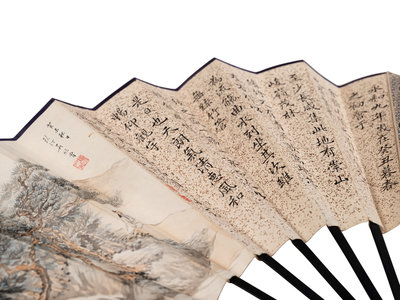 永和九年歲在癸丑暮春
之初會于
至少長咸集此地有崇山
峻嶺茂林
為流觴曲水列坐其次雖
無絲竹
是日也天朗氣清惠風和
暢仰觀宇